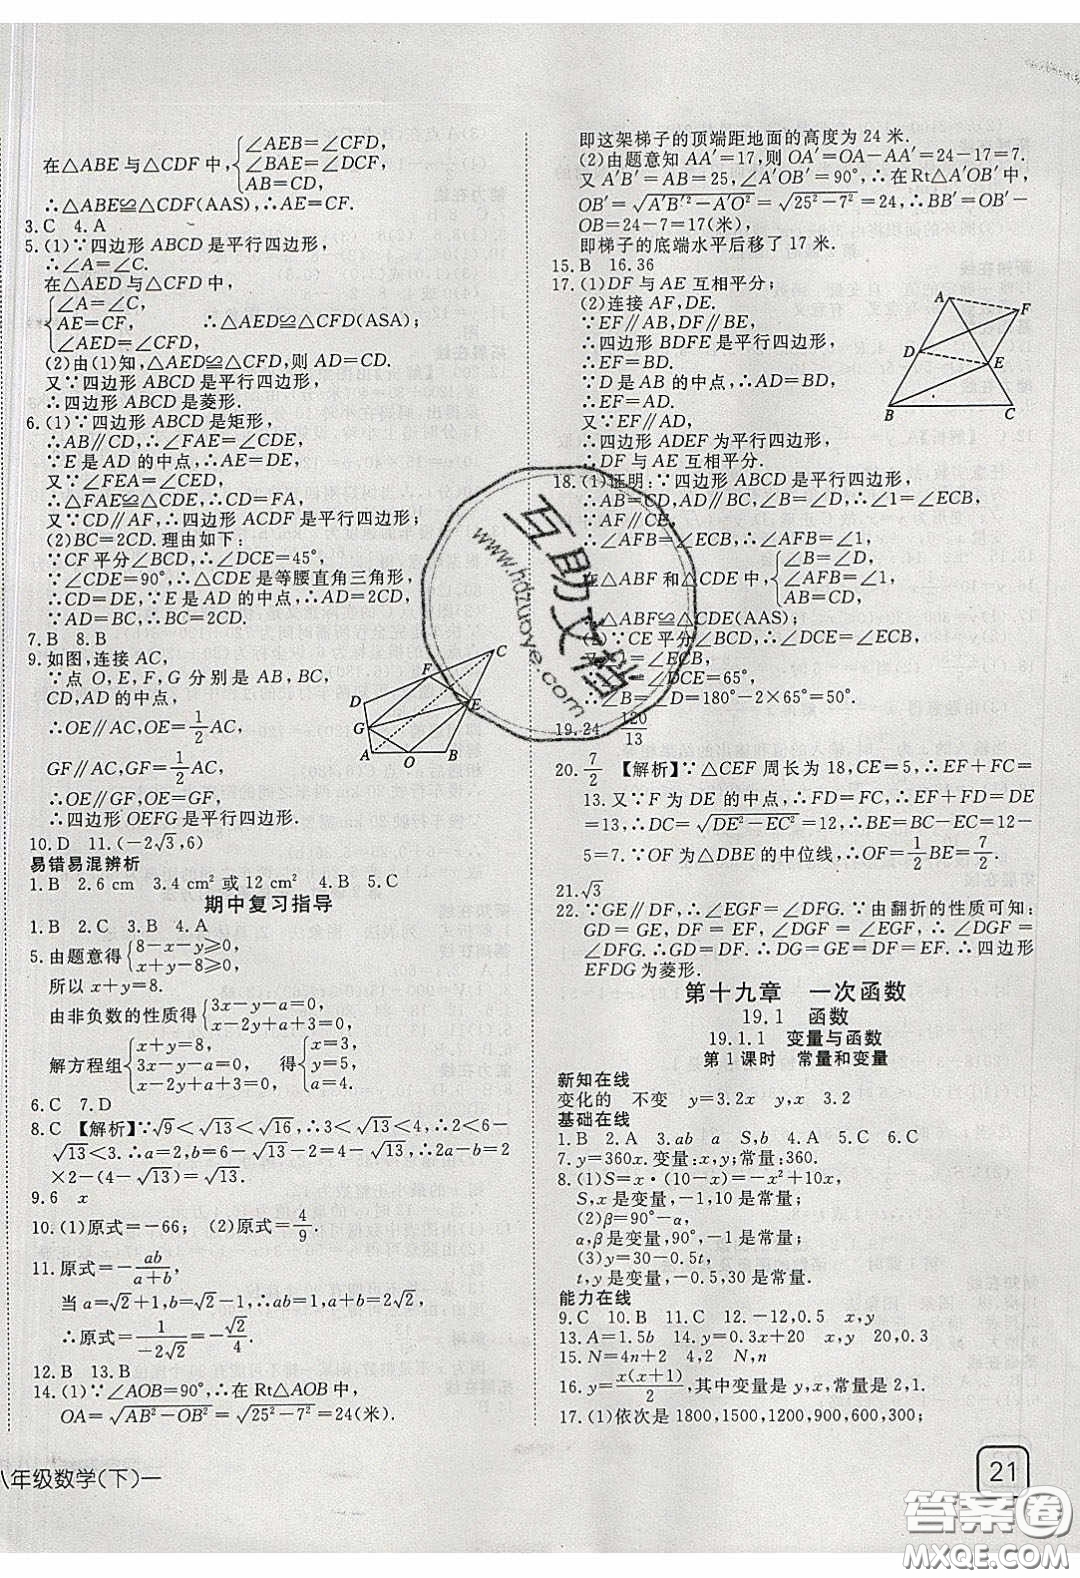 在△ABE与△CDF中,{∠AEB=∠CFD,
∠BAE=∠DCF,
AB=CD,
∴△ABE≌△CDF(AAS),∴AE=CF.
3.C 4.A
5.(1)∵四边形ABCD是平行四边形,
∴∠A=∠C.
在△AED与△CFD中,
{∠A=∠C,
AE=CF, ∴△AED≌△CFD(ASA);
∠AED=∠CFD,
(2)由(1)知,△AED≌△CFD,则AD=CD.
又∵四边形ABCD是平行四边形,
∴四边形ABCD是菱形.
6.(1)∵四边形ABCD是矩形,
∴AB∥CD,∴∠FAE=∠CDE.
∵E是AD的中点,∴AE=DE.
又∵∠FEA=∠CED,
∴△FAE≌△CDE,∴CD=FA.
又∵CD∥AF,∴四边形ACDF是平行四边形;
(2)BC=2CD.理由如下:
∵CF平分∠BCD,∴∠DCE=45°,
∵∠CDE=90°,∴△CDE是等腰直角三角形,
∴CD=DE,∵E是AD的中点,∴AD=2CD,
∵AD=BC,∴BC=2CD.
7.B 8.B
9.如图,连接AC,
∵点O,E,F,G分别是AB,BC,
CD,AD的中点,
∴OE∥AC,OE=1/2AC,
GF∥AC,GF=1/2AC,
∴OE∥GF,OE=GF,
∴四边形OEFG是平行四边形.
D
F
C
G
E
A
O
B
10.D 11.(-2√3,6)
易错易混辨析
1.B 2.6 cm 3.4 cm²或12 cm² 4.B 5.C
期中复习指导
1.B 2.C 3.B 4.A
5.由题意得{8-x-y≥0,
x+y-8≥0,
所以x+y=8.
由非负数的性质得{3x-y-a=0,
x-2y+a+3=0,
解方程组{x+y=8,
3x-y-a=0,
x-2y+a+3=0, 得{x=3,
y=5,
a=4.
6.C 7.D
8.C 【解析】∵√9<√13<√16,∴3<√13<4,∴2<6-
√13<3.∴a=2,b=6-√13-2=4-√13.∴2a-b=2
×2-(4-√13)=√13.
9.6 x
10.(1)原式=-66; (2)原式=4/9.
11.原式=-ab/(a+b),
当a=√2+1,b=√2-1,∴ab=1,a+b=2√2,
∴原式=1/(-2√2)=-√2/4.
12.B 13.B
14.(1)∵∠AOB=90°,∴在Rt△AOB中,
OA=√(AB²-OB²)=√(25²-7²)=24(米).
八年级数学(下)一
即这架梯子的顶端距地面的高度为24米.
(2)由题意知AA′=17,则OA′=OA-AA′=24-17=7.
又A′B′=AB=25,∠A′OB′=90°,∴在Rt△A′OB′中,
OB′=√(A′B′²-A′O²)=√(25²-7²)=24,∴BB′=OB′-
OB=24-7=17(米),
即梯子的底端水平后移了17米.
15.B 16.36
17.(1)DF与AE互相平分;
(2)连接AF,DE.
∵EF∥AB,DF∥BE,
∴四边形BDFE是平行四边形,
∴EF=BD.
∵D是AB的中点,∴AD=BD.
∴EF=AD.
又∵EF∥AD,
∴四边形ADEF为平行四边形.
∴DF与AE互相平分.
A
F
D
E
B
C
18.(1)证明:∵四边形ABCD是平行四边形,
∴AB=CD,AD∥BC,∠B=∠D,∴∠1=∠ECB,
∵AF∥CE,
∴∠AFB=∠ECB,∴∠AFB=∠1,
在△ABF和△CDE中,{∠B=∠D,
∠AFB=∠1,
AB=CD,
∴△ABF≌△CDE(AAS);
(2)∵CE平分∠BCD,∴∠DCE=∠ECB,
∵∠1=∠ECB,
∴∠1=∠DCE=65°,
∴∠B=∠D=180°-2×65°=50°.
19.24 120/13
20.7/2 【解析】∵△CEF周长为18,CE=5,∴EF+FC=
13.又∵F为DE的中点,∴DF=FE,∴FC+FD=DE
=13,∴DC=√(DE²-EC²)=12,∴BE=BC-EC=12
-5=7.∵OF为△DBE的中位线,∴OF=1/2BE=7/2.
21.√3
22.∵GE∥DF,∴∠EGF=∠DFG.∵由翻折的性质可知:
GD=GE,DF=EF,∠DGF=∠EGF,∴∠DGF=
∠DFG.∴GD=DF.∴DG=GE=DF=EF.∴四边形
EFDG为菱形.
第十九章 一次函数
19.1 函数
19.1.1 变量与函数
第1课时 常量和变量
新知在线
变化的 不变 y=3.2x y,x 3.2
基础在线
1.B 2.A 3.ab a S,b 4.A 5.C 6.C
7.y=360x.变量:x,y;常量:360.
8.(1)S=x·(10-x)=-x²+10x,
S,x是变量,-1,10是常量;
(2)β=90°-α,
α,β是变量,90°,-1是常量;
(3)y=30-0.5t,
t,y是变量,-0.5,30是常量.
能力在线
9.C 10.B 11.C 12.-12,0.5 x,y
13.A=1.5b 14.y=0.3x+20 x,y 20,0.3
15.N=4n+2 4,2 N,n
16.y=x(x+1)/2,其中变量是x,y,常量是2,1.
17.(1)依次是1800,1500,1200,900,600,300;
21
互助文档
www.hdzuoye.com
答案圈
MXQE.COM